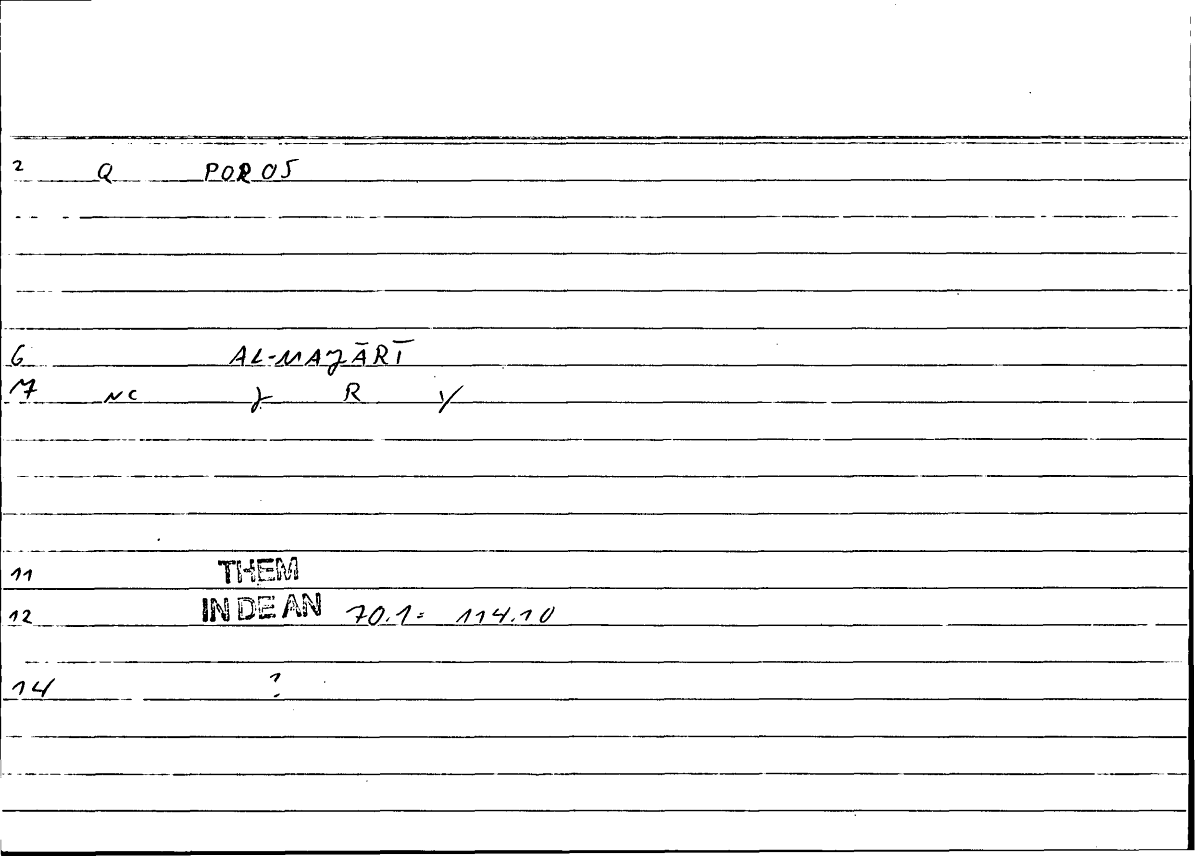 2 Q POROS
6 AL-MAJĀRĪ
7 NC R
11 THEM
12 IN DE AN 70.1= 114.10
14 ?